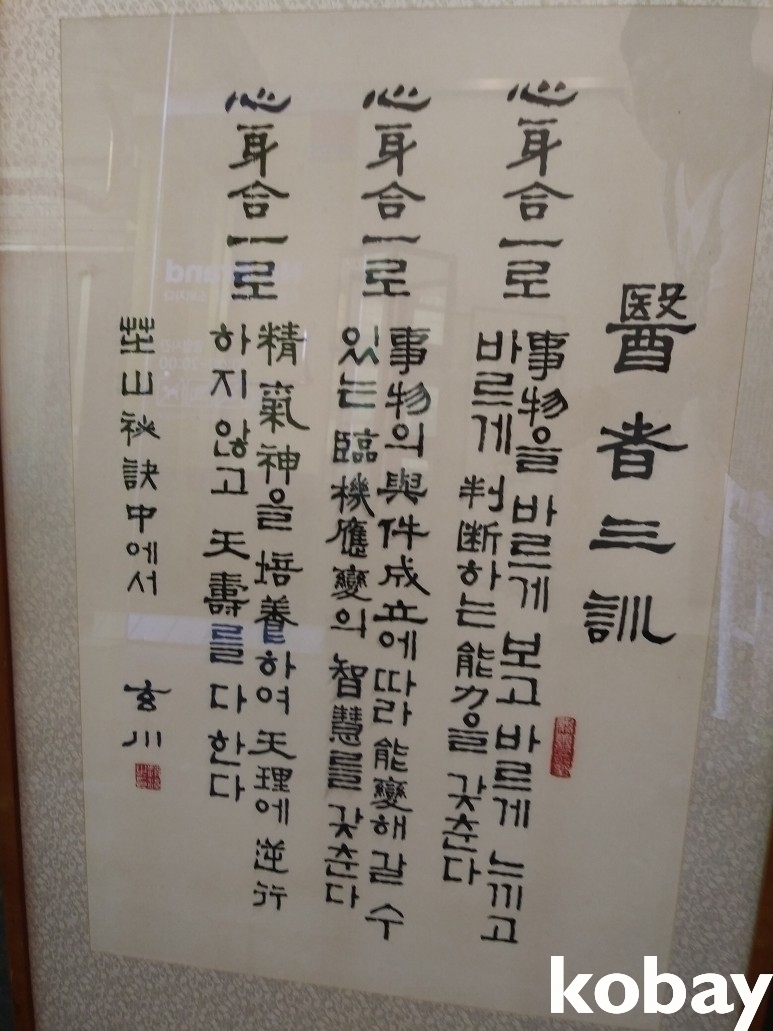 醫者三訓
心身合一로
事物을 바르게 보고 바르게 느끼고
바르게 判断하는 能力을 갖춘다
心身合一로
事物의 與件成立에 따라 能變해 갈 수
있는 臨機應變의 智慧를 갖춘다
心身合一로
精氣神을 培養하여 天理에 逆行
하지 않고 天壽를 다 한다
山祕訣中에서 玄川
kobay